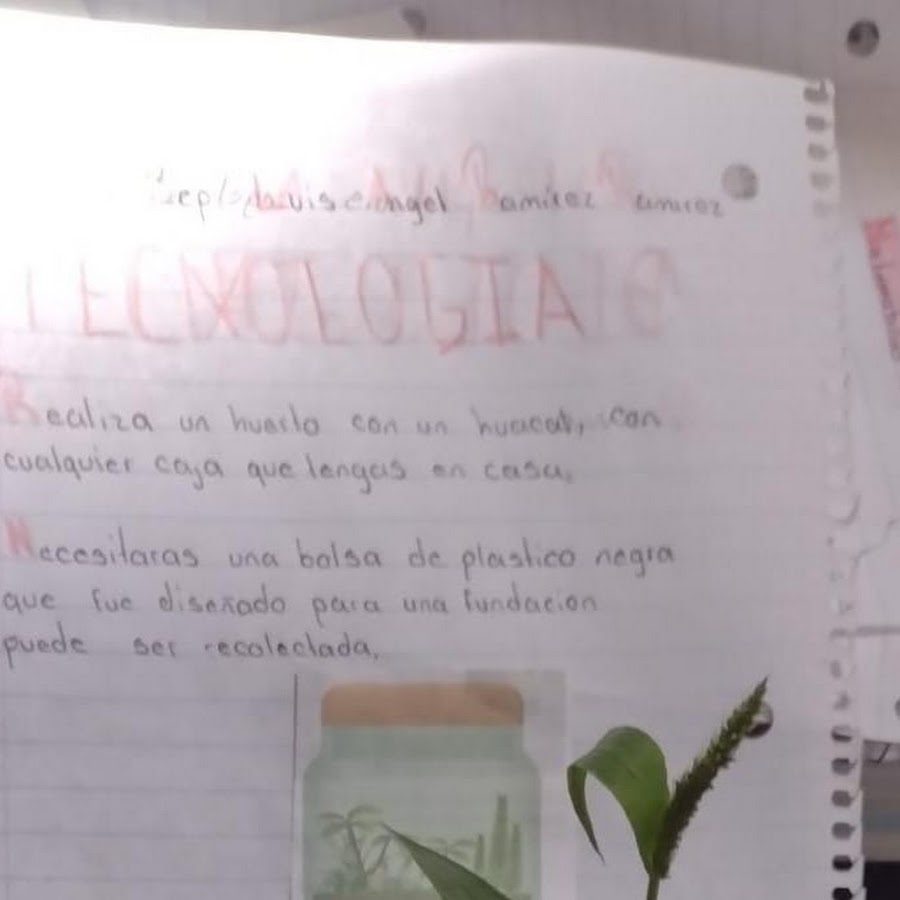 Angel Ramirez Ramirez
TECNOLOGIA
Realiza un huerto con un huacat, con
cualquier caja que tengas en casa.
Necesitaras una bolsa de plastico negra
que fue diseñado para una fundacion
puede ser recolectada.